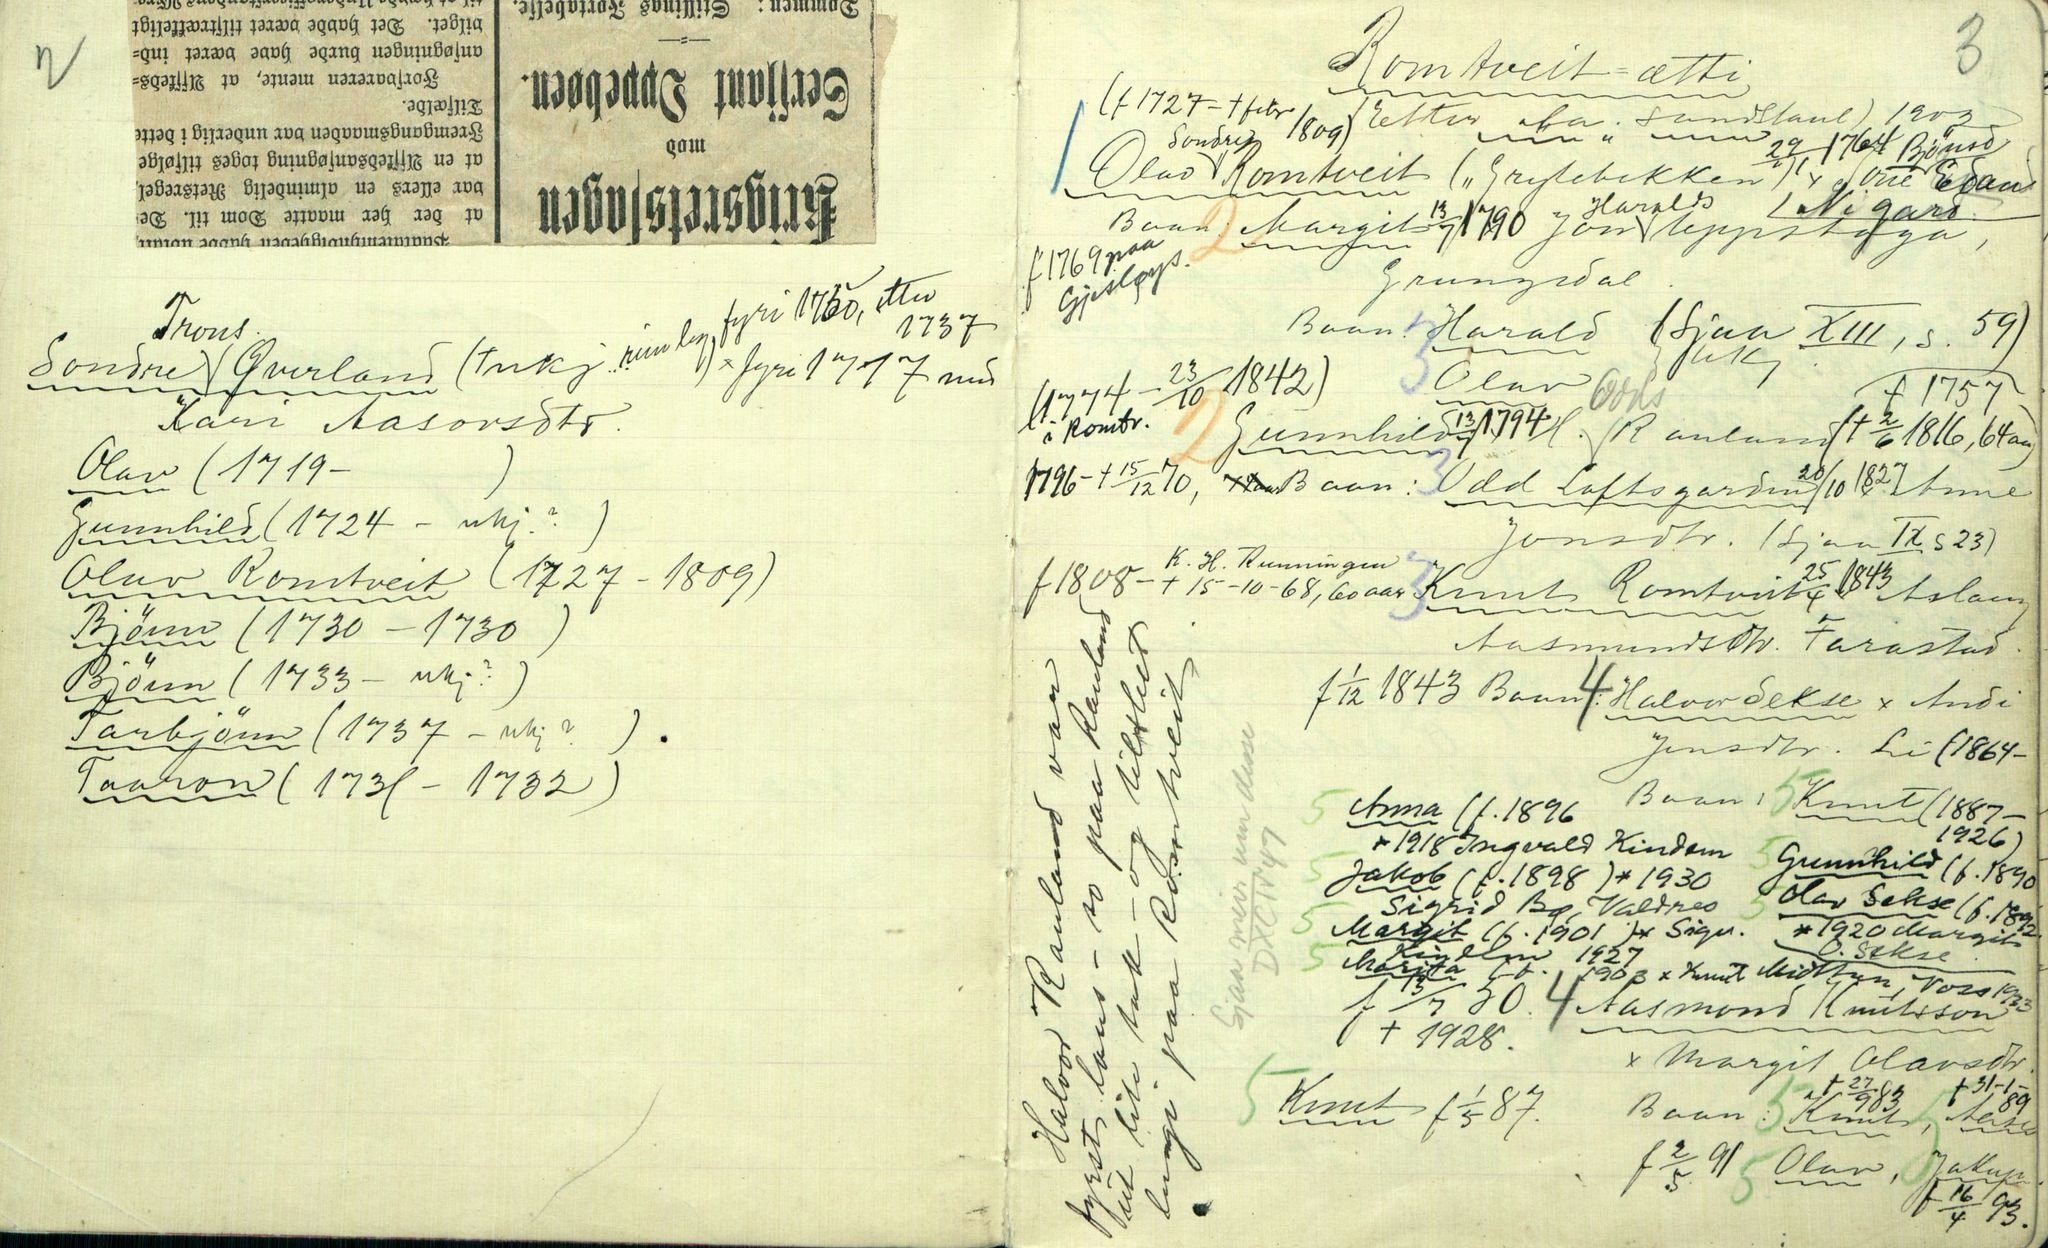 2
Krigsretslagen
mod
Sersjant Oppebøen.
Dommen: Stillings Fortabelse.
at der her maatte Dom til. Det
var ellers en almindelig Retsregel,
at en Afskedsansøgning toges tilfølge
Fremgangsmaaden var underlig i dette
Tilfælde.
Forsvareren mente, at Afskeds-
ansøgningen burde have været ind-
vilget. Det havde været tilstrækkeligt
Trons.
Sondre Øverland (†ukj. rimleg fyri 1750, etter
1737
× fyri 1717 med
Kari Aasovsdtr.
Olav (1719- )
Gunnhild (1724 - ukj.? )
Olav Romtveit (1727-1809)
Björnn (1730-1730 )
Björnn (1733- ukj? )
Tarbjönn (1737 - ukj? ) .
Taaron (1731 - 1732 )
3
Romtveit-ætti
(f 1727 - † febr 1809) (Etter Sundstaul) 1903
1 Olav Sondres Romtveit ("Grytebekken") 29/1 1764 Björnsd
Nigard
f 1769 paa
Gjesløys.
Baan: 2 Margit 13/7 1790 Jon Haralds Uppstøga,
Grungedal.
Baan: 3 Harald (Sjaa XIII, s. 59)
3 Olav } ukj.
(1774 - 23/10 1842)
i Romtv.
f 1757
2 Gunnhild 13/7 1794 H. Odds Rauland († 2/6 1816, 64 aar)
1796 - † 15/12 70, Baan: 3 Odd Loftsgarden 20/10 1827 × Anne
Jonsdtr. (Sjaa IX s 23)
f 1808 - K. H. Runningen
† 15-10-68, 60 aar 3 Knut Romtveit 25/4 1843 Aslaug
Aasmundsdtr. Farastad.
f 1/12 1843 Baan: 4 Halvor Sekse × Andi
Jonsdtr. Li (1864-
Baan: 5 Knut (1887-
1926)
5 Anna (f. 1896
× 1918 Ingvald Kindem
5 Gunnhild (f. 1890
5 Jakob (f. 1898 ) × 1930
Sigrid Bø, Valdres
5 Olav Sekse (f. 1892
× 1920 Margit
O. Sekse.
5 Margit (f. 1901 ) × Sigu.
Kindem 1927
5 Marita f. 1903 × Knut Midttun, Voss 1933
f 13/7 50. 4 Aasmond Knutsson
† 1928.
× Margit Olavsdtr.
5 Knut f 1/5 87.
Baan: 5 Knut † 27/9 83, 5 † 31-1-89
f 2/5 91 5 Olav, Jakup
f 16/4 93.
Halvor Rauland var
fyrst laus - so paa Rauland
eit lite tak - og tilslutt
lengi paa Romtveit.
Sjaa meir um desse
DXCIV 47